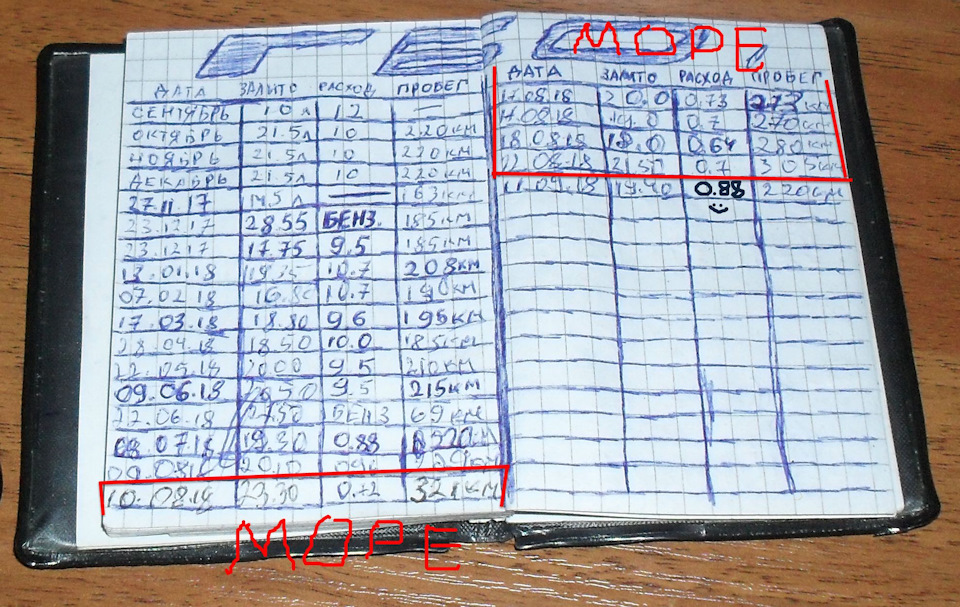 ДАТА ЗАЛИТО РАСХОД ПРОБЕГ
СЕНТЯБРЬ 10 л 12 —
ОКТЯБРЬ 21.5л 10 220КМ
НОЯБРЬ 21.5л 10 220КМ
ДЕКАБРЬ 21.5л 10 220КМ
27.11.17 14.5 л — 163КМ
23.12.17 28.55 БЕНЗ. 185КМ
23.12.17 17.75 9.5 185КМ
18.01.18 10.7 208КМ
07.02.18 10.7 190КМ
17.03.18 18.80 9.6 195КМ
28.04.18 18.50 10.0 185КМ
22.05.18 20.00 9.5 210КМ
09.06.18 20.50 9.5 215КМ
22.06.18 27.50 БЕНЗ 69КМ
08.07.18 19.30 0.88
20.10
10.08.18 23.30 0.72 321КМ
МОРЕ
МОРЕ
ДАТА ЗАЛИТО РАСХОД ПРОБЕГ
17.08.18 20.0 0.73 273 КМ
17.08.18 0.7 270КМ
18.08.18 18.0 0.64 280КМ
22.08.18 21.50 0.7 305КМ
11.09.18 19.40 0.88 220КМ